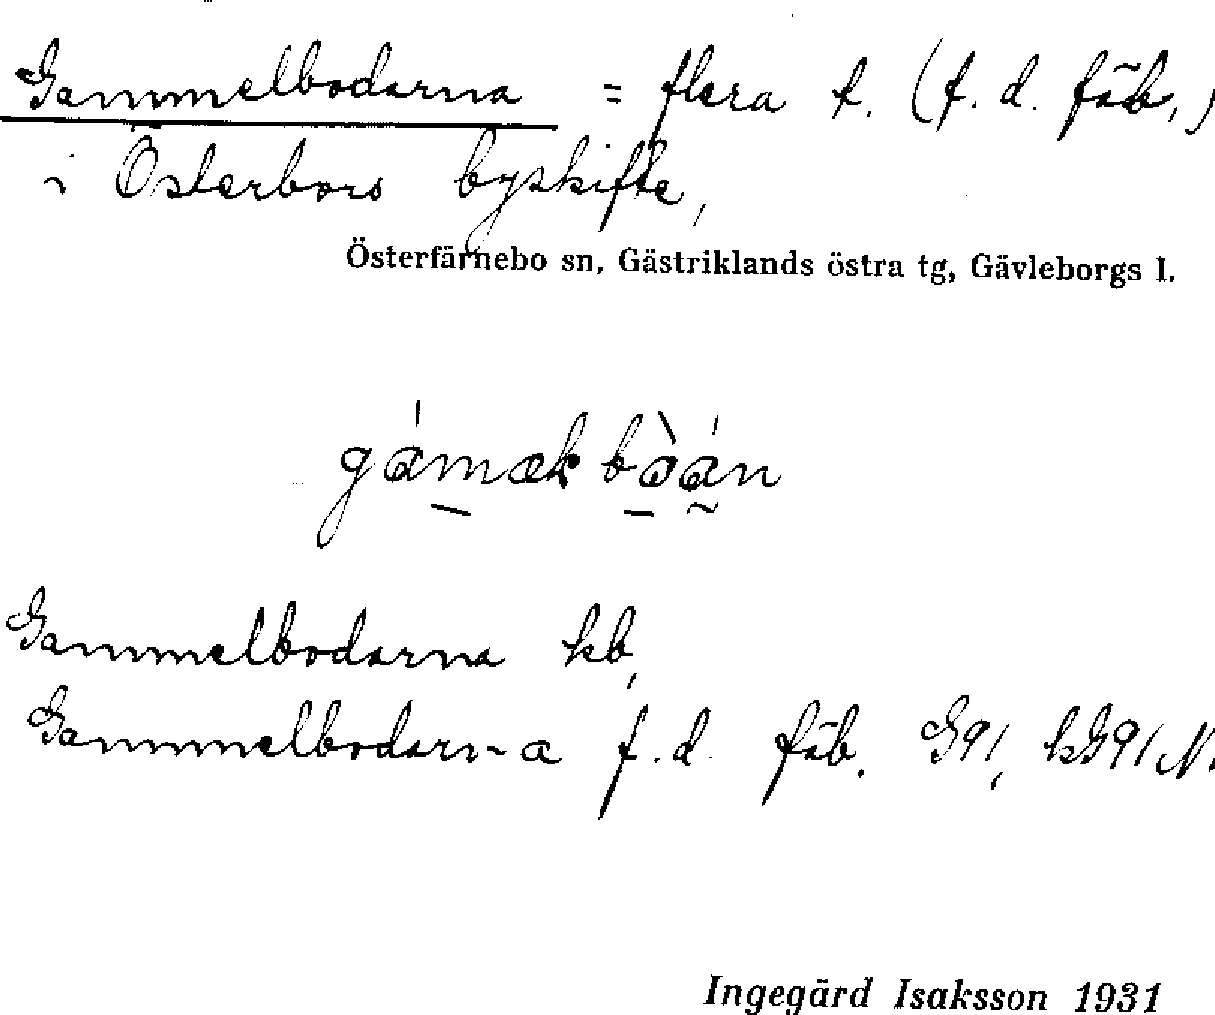 Gammelbodarna = flera t. (f. d. fäb.)
i Österbors byskifte,
Österfärnebo sn, Gästriklands östra tg, Gävleborgs l.
Gammelbodarna kb,
Gammelbodarn-a f.d. fäb. G91, kG91N.
Ingegärd Isaksson 1931